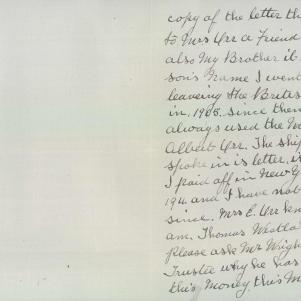 copy of the letter th
to Mrs Orr a Friend
also My Brother it
son's name I went
leaveing the Britis
in 1905. since then
always used the M
Albert Orr. The ship
spoke in is letter, i
I paid off in New Y
1911 and I have not
since. Mrs E. Orr kn
am. Thomas Westla
please ask Mr Wrigh
Trustee why he has
this Money. this M